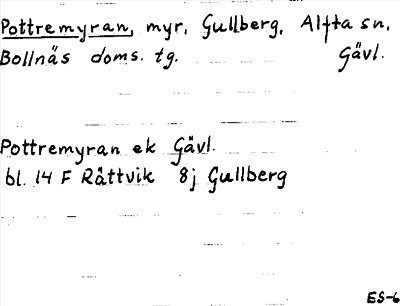 Pottremyran, myr, Gullberg, Alfta sn,
Bollnäs doms. tg. Gävl.
Pottremyran ek Gävl.
bl. 14 F Rättvik 8j Gullberg
ES-6